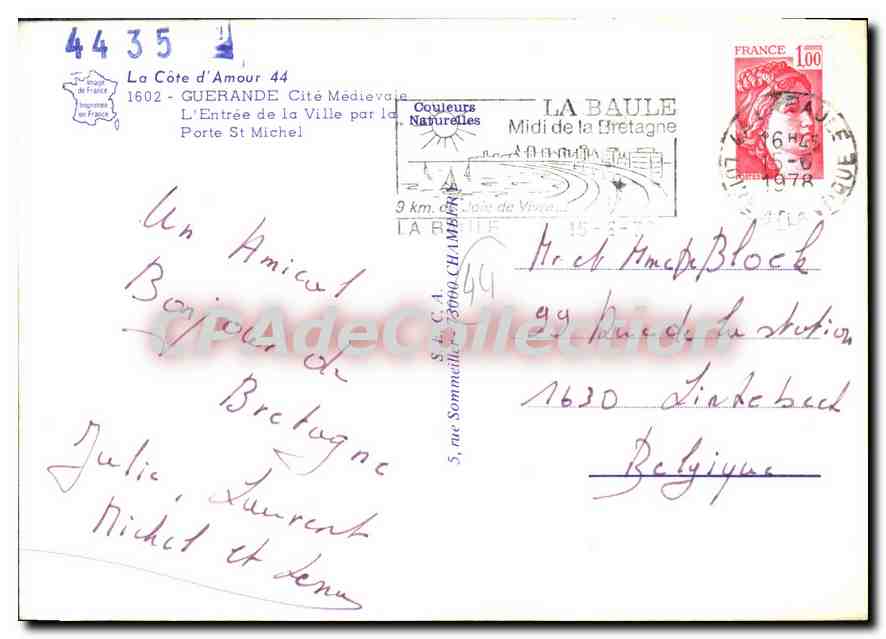 4435
Image
de France
Imprimée
en France
La Côte d'Amour 44
1602 - GUERANDE Cité Médiévale
L'Entrée de la Ville par la
Porte St Michel
Couleurs
Naturelles
LA BAULE
Midi de la Bretagne
9 km. de Joie de Vivre...
LA BAULE 15-6-78
FRANCE 1,00
16H45
15-6
1978
Un Amical
Bonjour de
Bretagne
Julie, Laurent
Michel et
44
S.E.C.A.
5, rue Sommeiller - 73000 CHAMBERY
Mr et Mme De Block
99 Rue de la station
1630 Linkebeek
Belgique
CPAdeCollection